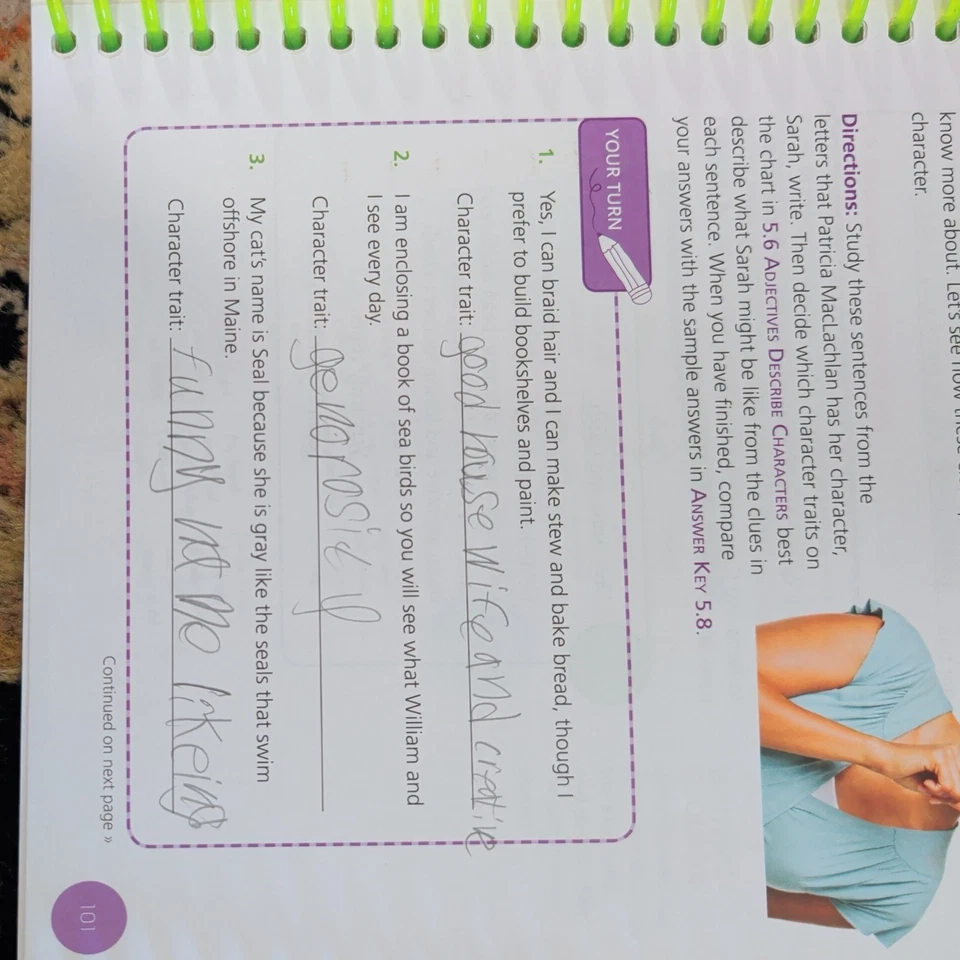 know more about. Let's see how
character.
Directions: Study these sentences from the
letters that Patricia MacLachlan has her character,
Sarah, write. Then decide which character traits on
the chart in 5.6 ADJECTIVES DESCRIBE CHARACTERS best
describe what Sarah might be like from the clues in
each sentence. When you have finished, compare
your answers with the sample answers in ANSWER KEY 5.8.
YOUR TURN
1. Yes, I can braid hair and I can make stew and bake bread, though I
prefer to build bookshelves and paint.
Character trait: good house wife and creative
2. I am enclosing a book of sea birds so you will see what William and
I see every day.
Character trait:
3. My cat's name is Seal because she is gray like the seals that swim
offshore in Maine.
Character trait: funny
Continued on next page »
101